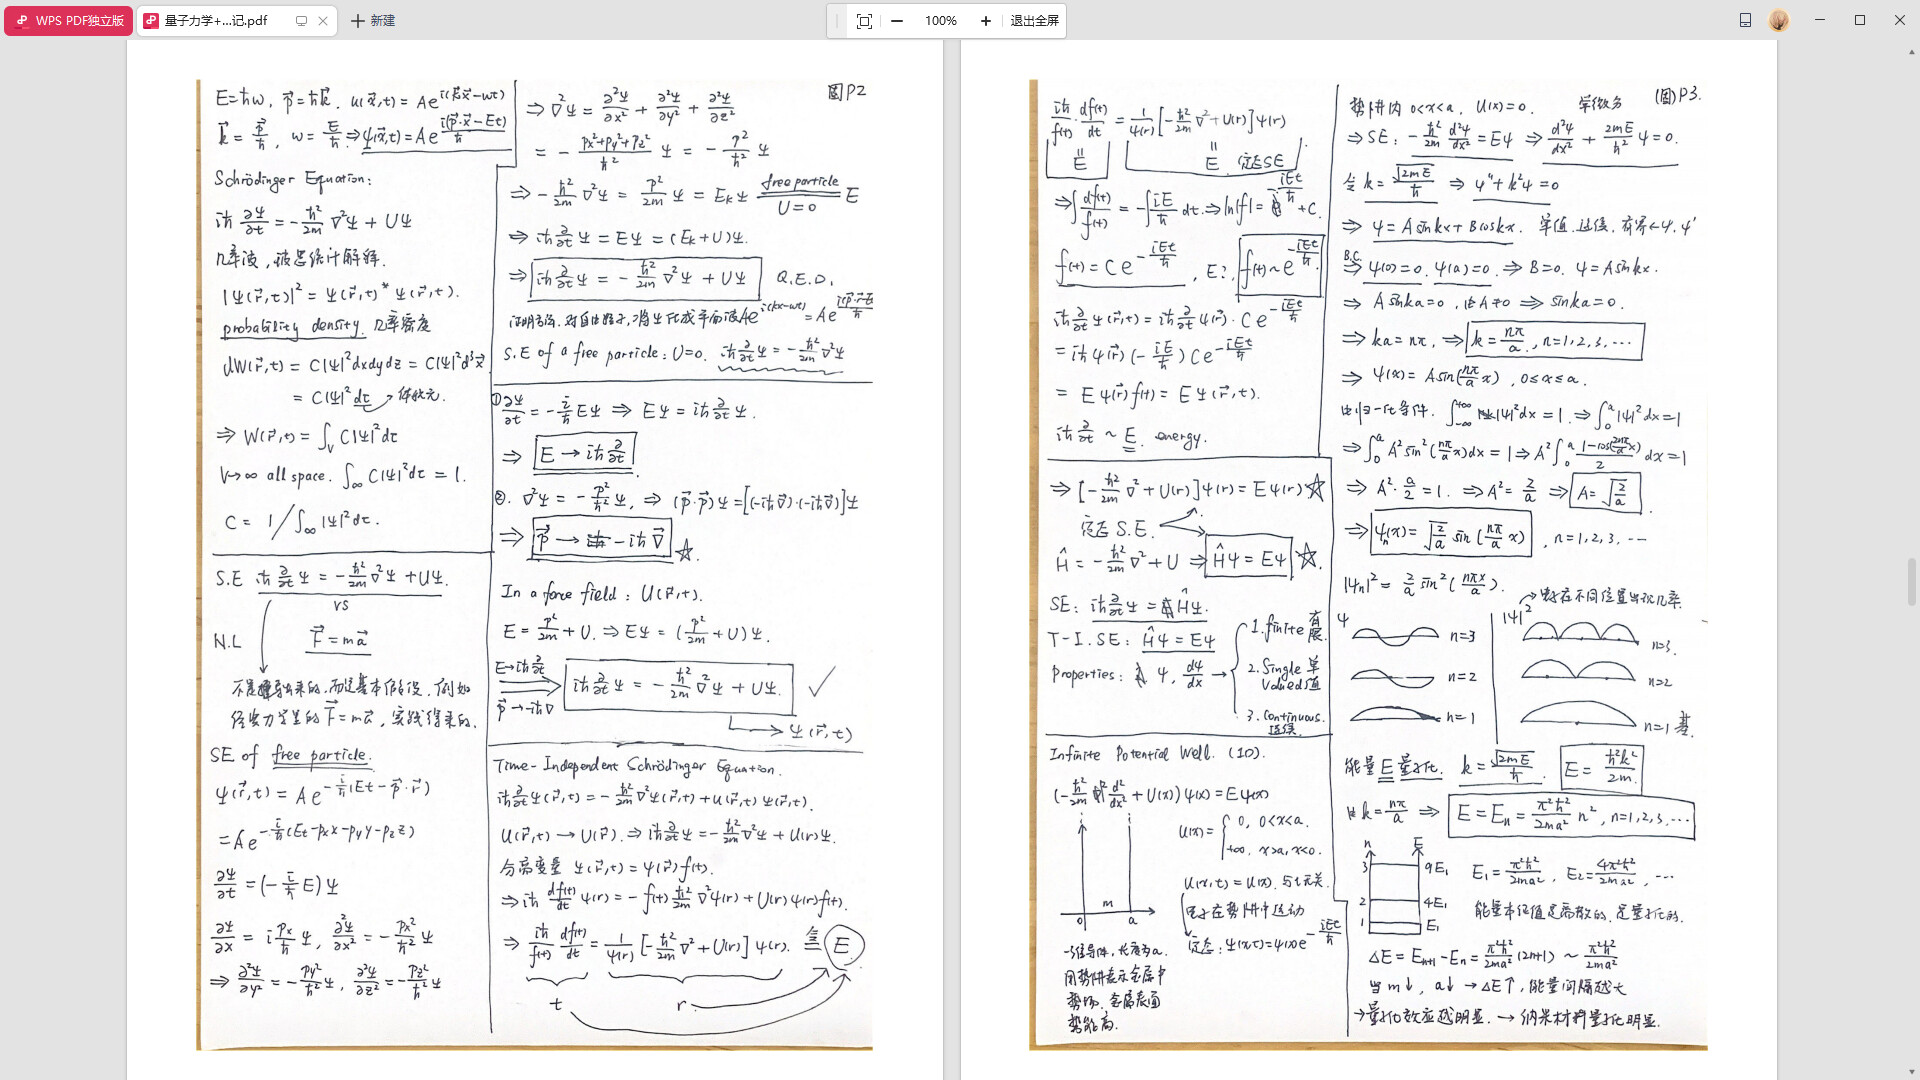 WPS PDF独立版
量子力学+...记.pdf
新建
100%
退出全屏
图P2
E=ħω, p⃗=ħk⃗. u(x⃗,t)=Ae^{i(k⃗·x⃗-ωt)}
k⃗=p⃗/ħ, ω=E/ħ ⇒ Ψ(x⃗,t)=Ae^{i(p⃗·x⃗-Et)/ħ}
Schrödinger Equation:
iħ ∂Ψ/∂t = -ħ²/2m ∇²Ψ + UΨ
几率波, 玻恩统计解释.
|Ψ(r⃗,t)|² = Ψ(r⃗,t)* Ψ(r⃗,t).
probability density. 几率密度
dW(r⃗,t) = C|Ψ|²dxdydz = C|Ψ|²d³x⃗
= C|Ψ|²dτ → 体积元.
⇒ W(r⃗,t)=∫_V C|Ψ|²dτ
V→∞ all space. ∫_∞ C|Ψ|²dτ = 1.
C = 1/∫_∞ |Ψ|²dτ.
S.E iħ ∂/∂t Ψ = -ħ²/2m ∇²Ψ + UΨ.
vs
N.L F⃗=ma⃗
不是推导出来的, 而是基本假设. 例如
经典力学里的 F⃗=ma⃗, 实践得来的.
SE of free particle.
Ψ(r⃗,t) = Ae^{-i/ħ(Et-p⃗·r⃗)}
=Ae^{-i/ħ(Et-pxx-pyy-pzz)}
∂Ψ/∂t = (-i/ħ E)Ψ
∂Ψ/∂x = i px/ħ Ψ, ∂²Ψ/∂x² = -px²/ħ² Ψ
⇒ ∂²Ψ/∂y² = -py²/ħ² Ψ, ∂²Ψ/∂z² = -pz²/ħ² Ψ
⇒ ∇²Ψ = ∂²Ψ/∂x² + ∂²Ψ/∂y² + ∂²Ψ/∂z²
= - (px²+py²+pz²)/ħ² Ψ = - p²/ħ² Ψ
⇒ -ħ²/2m ∇²Ψ = p²/2m Ψ = EkΨ free particle U=0 E
⇒ iħ ∂/∂t Ψ = EΨ = (Ek+U)Ψ.
⇒ iħ ∂/∂t Ψ = -ħ²/2m ∇²Ψ + UΨ Q.E.D.
证明方法. 对自由粒子, 将Ψ化成平面波Ae^{i(kx-ωt)} = Ae^{i(p⃗·r⃗-Et)/ħ}
S.E of a free particle: U=0. iħ ∂/∂t Ψ = -ħ²/2m ∇²Ψ
① ∂Ψ/∂t = -i/ħ EΨ ⇒ EΨ = iħ ∂/∂t Ψ.
⇒ E → iħ ∂/∂t
②. ∇²Ψ = -p²/ħ² Ψ, ⇒ (p⃗·p⃗)Ψ=[(-iħ∇⃗)·(-iħ∇⃗)]Ψ
⇒ p⃗ → -iħ∇⃗ ☆.
In a force field: U(r⃗,t).
E = p²/2m + U. ⇒ EΨ = (p²/2m + U)Ψ.
E→iħ ∂/∂t
p⃗→-iħ∇
iħ ∂/∂t Ψ = -ħ²/2m ∇²Ψ + UΨ. ✓
→ Ψ(r⃗,t)
Time-Independent Schrödinger Equation.
iħ ∂/∂t Ψ(r⃗,t) = -ħ²/2m ∇²Ψ(r⃗,t)+U(r⃗,t)Ψ(r⃗,t).
U(r⃗,t) → U(r⃗). ⇒ iħ ∂/∂t Ψ = -ħ²/2m ∇²Ψ + U(r)Ψ.
分离变量 Ψ(r⃗,t) = ψ(r⃗)f(t).
⇒ iħ df(t)/dt ψ(r) = -f(t) ħ²/2m ∇²ψ(r) + U(r)ψ(r)f(t).
⇒ iħ/f(t) df(t)/dt = 1/ψ(r) [-ħ²/2m ∇² + U(r)] ψ(r). 令= E
t r
(图)P3.
iħ/f(t) · df(t)/dt = 1/ψ(r) [-ħ²/2m ∇² + U(r)]ψ(r)
E E 定态SE
⇒ ∫df(t)/f(t) = -∫iE/ħ dt. ⇒ ln|f| = -iEt/ħ + C.
f(t) = Ce^{-iEt/ħ}, E?. f(t)~e^{-iEt/ħ}.
iħ ∂/∂t Ψ(r,t) = iħ ∂/∂t ψ(r⃗)·Ce^{-iEt/ħ}
= iħ ψ(r⃗)(-iE/ħ)Ce^{-iEt/ħ}
= Eψ(r⃗)f(t) = EΨ(r⃗,t).
iħ ∂/∂t ~ E. energy.
⇒ [-ħ²/2m ∇² + U(r)]ψ(r) = Eψ(r) ☆
定态 S.E.
Ĥ = -ħ²/2m ∇² + U ⇒ Ĥψ = Eψ ☆.
SE: iħ ∂/∂t Ψ = ĤΨ.
T-I.SE: Ĥψ = Eψ
Properties: ψ, dψ/dx →
1. finite 有限.
2. Single Valued 单值
3. Continuous. 连续.
Infinite Potential Well. (1D).
(-ħ²/2m d²/dx² + U(x))ψ(x) = Eψ(x)
U(x) = { 0, 0<x<a.
+∞, x>a, x<0.
U(x,t) = U(x). 与t无关.
电子在势阱中运动
定态: Ψ(x,t)=ψ(x)e^{-iEt/ħ}
m
0 a
一维导体, 长度为a.
用势阱表示金属中
势场. 金属表面
势能高.
势阱内 0<x<a, U(x)=0. 常微分
⇒ SE: -ħ²/2m d²ψ/dx² = Eψ ⇒ d²ψ/dx² + 2mE/ħ² ψ = 0.
令 k = √2mE/ħ ⇒ ψ''+k²ψ=0
⇒ ψ = A sinkx + B coskx. 单值.连续. 有界←ψ, ψ'
B.C. ⇒ ψ(0)=0. ψ(a)=0. ⇒ B=0. ψ=Asinkx.
⇒ A sinka=0, 由A≠0 ⇒ sinka=0.
⇒ ka=nπ, ⇒ k = nπ/a, n=1,2,3,…
⇒ ψ(x) = Asin(nπ/a x), 0≤x≤a.
由归一化条件. ∫_{-∞}^{+∞} |ψ|²dx = 1. ⇒ ∫_0^a |ψ|²dx=1
⇒ ∫_0^a A²sin²(nπ/a x)dx = 1 ⇒ A²∫_0^a (1-cos(2nπ/a x))/2 dx=1
⇒ A²·a/2 = 1. ⇒ A² = 2/a ⇒ A=√(2/a).
⇒ ψn(x) = √(2/a) sin(nπ/a x), n=1,2,3,…
|ψn|² = 2/a sin²(nπx/a).
→电子在不同位置出现几率.
ψ
n=3
n=2
n=1
|ψ|²
n=3.
n=2
n=1 基.
能量E量子化. k = √2mE/ħ. E = ħ²k²/2m.
由 k=nπ/a ⇒ E=En = π²ħ²/2ma² n², n=1,2,3,…
n E
3 9E1
2 4E1
1 E1
E1 = π²ħ²/2ma², E2 = 4π²ħ²/2ma², …
能量本征值是离散的. 是量子化的.
ΔE = En+1 - En = π²ħ²/2ma² (2n+1) ~ π²ħ²/2ma²
当 m↓, a↓ → ΔE↑, 能量间隔越大
→量子化效应越明显. → 纳米材料量子化明显.